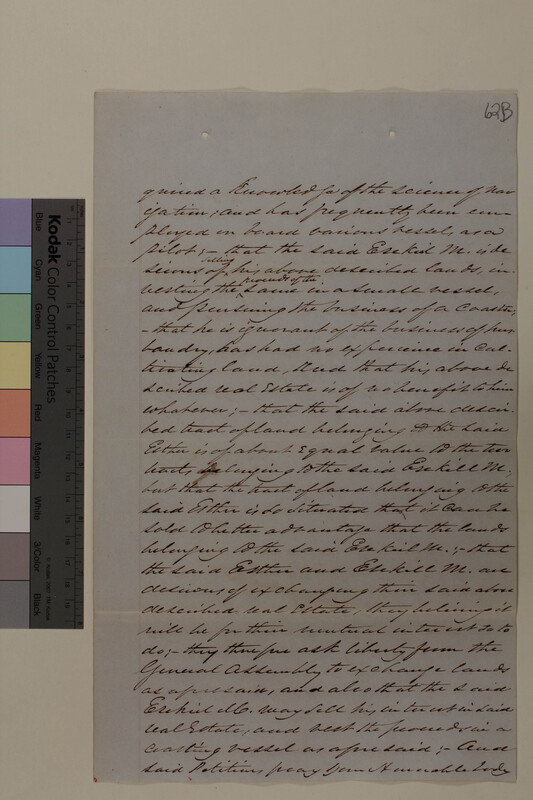 62B
quired a Knowledge of the science of nav
igation; and has frequently been em-
ployed on board various vessels, as a
pilot; - that the said Ezekiel M. is de
serious of selling his above described lands, in-
vesting the proceeds of the same in a small vessel,
and pursuing the business of a Coaster;
- that he is ignorant of the business of hus
bandry, has had no experience in Cul-
tivating land, And that his above de
scribed real Estate is of no benefit to him
whatever; - that the said above descri-
bed tract of land belonging to the said
Esther is of about Equal value to the two
tracts belonging to the said Ezekiell M;
but that the tract of land belonging to the
said Esther is so situated that it can be
sold to better advantage that the lands
belonging to the said Ezekiel M.; - that
the said Esther and Ezekiell M. are
desirous of exchanging their said above
described real Estate; they believing it
will be for their mutual interest so to
do; - they therefore ask liberty from the
General Assembly to exchange lands
as aforesaid, and also that the said
Ezekiel M. may sell his interest in said
real Estate, and vest the proceeds in a
coasting vessel as aforesaid; - And
said Petitioners pray your Honorable body
Kodak Color Control Patches
Blue
Cyan
Green
Yellow
Red
Magenta
White
3/Color
Black